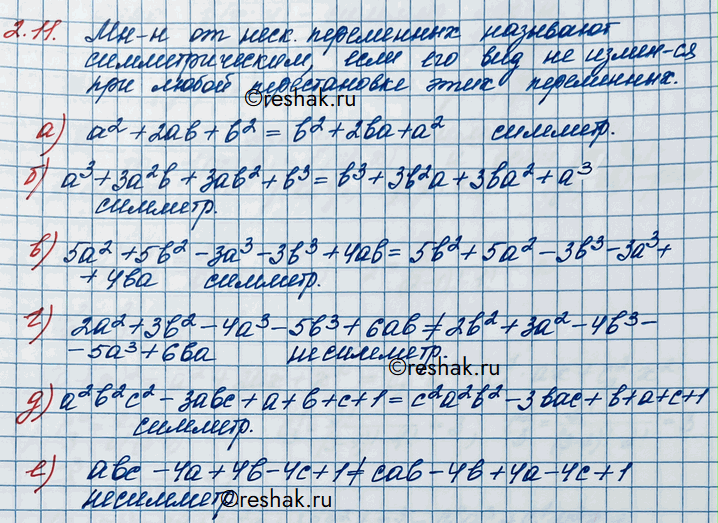 2.11. Мн-н от неск. переменных называют
симметрическим, если его вид не измен-ся
при любой перестановке этих переменных.
©reshak.ru
а) a² + 2ab + b² = b² + 2ba + a² симметр.
б) a³ + 3a²b + 3ab² + b³ = b³ + 3b²a + 3ba² + a³
симметр.
в) 5a² + 5b² - 3a³ - 3b³ + 4ab = 5b² + 5a² - 3b³ - 3a³ +
+ 4ba симметр.
г) 2a² + 3b² - 4a³ - 5b³ + 6ab ≠ 2b² + 3a² - 4b³ -
- 5a³ + 6ba несиметр.
©reshak.ru
д) a²b²c² - 3abc + a + b + c + 1 = c²a²b² - 3bac + b + a + c + 1
симметр.
е) abc - 4a + 4b - 4c + 1 ≠ cab - 4b + 4a - 4c + 1
несимметр.
©reshak.ru